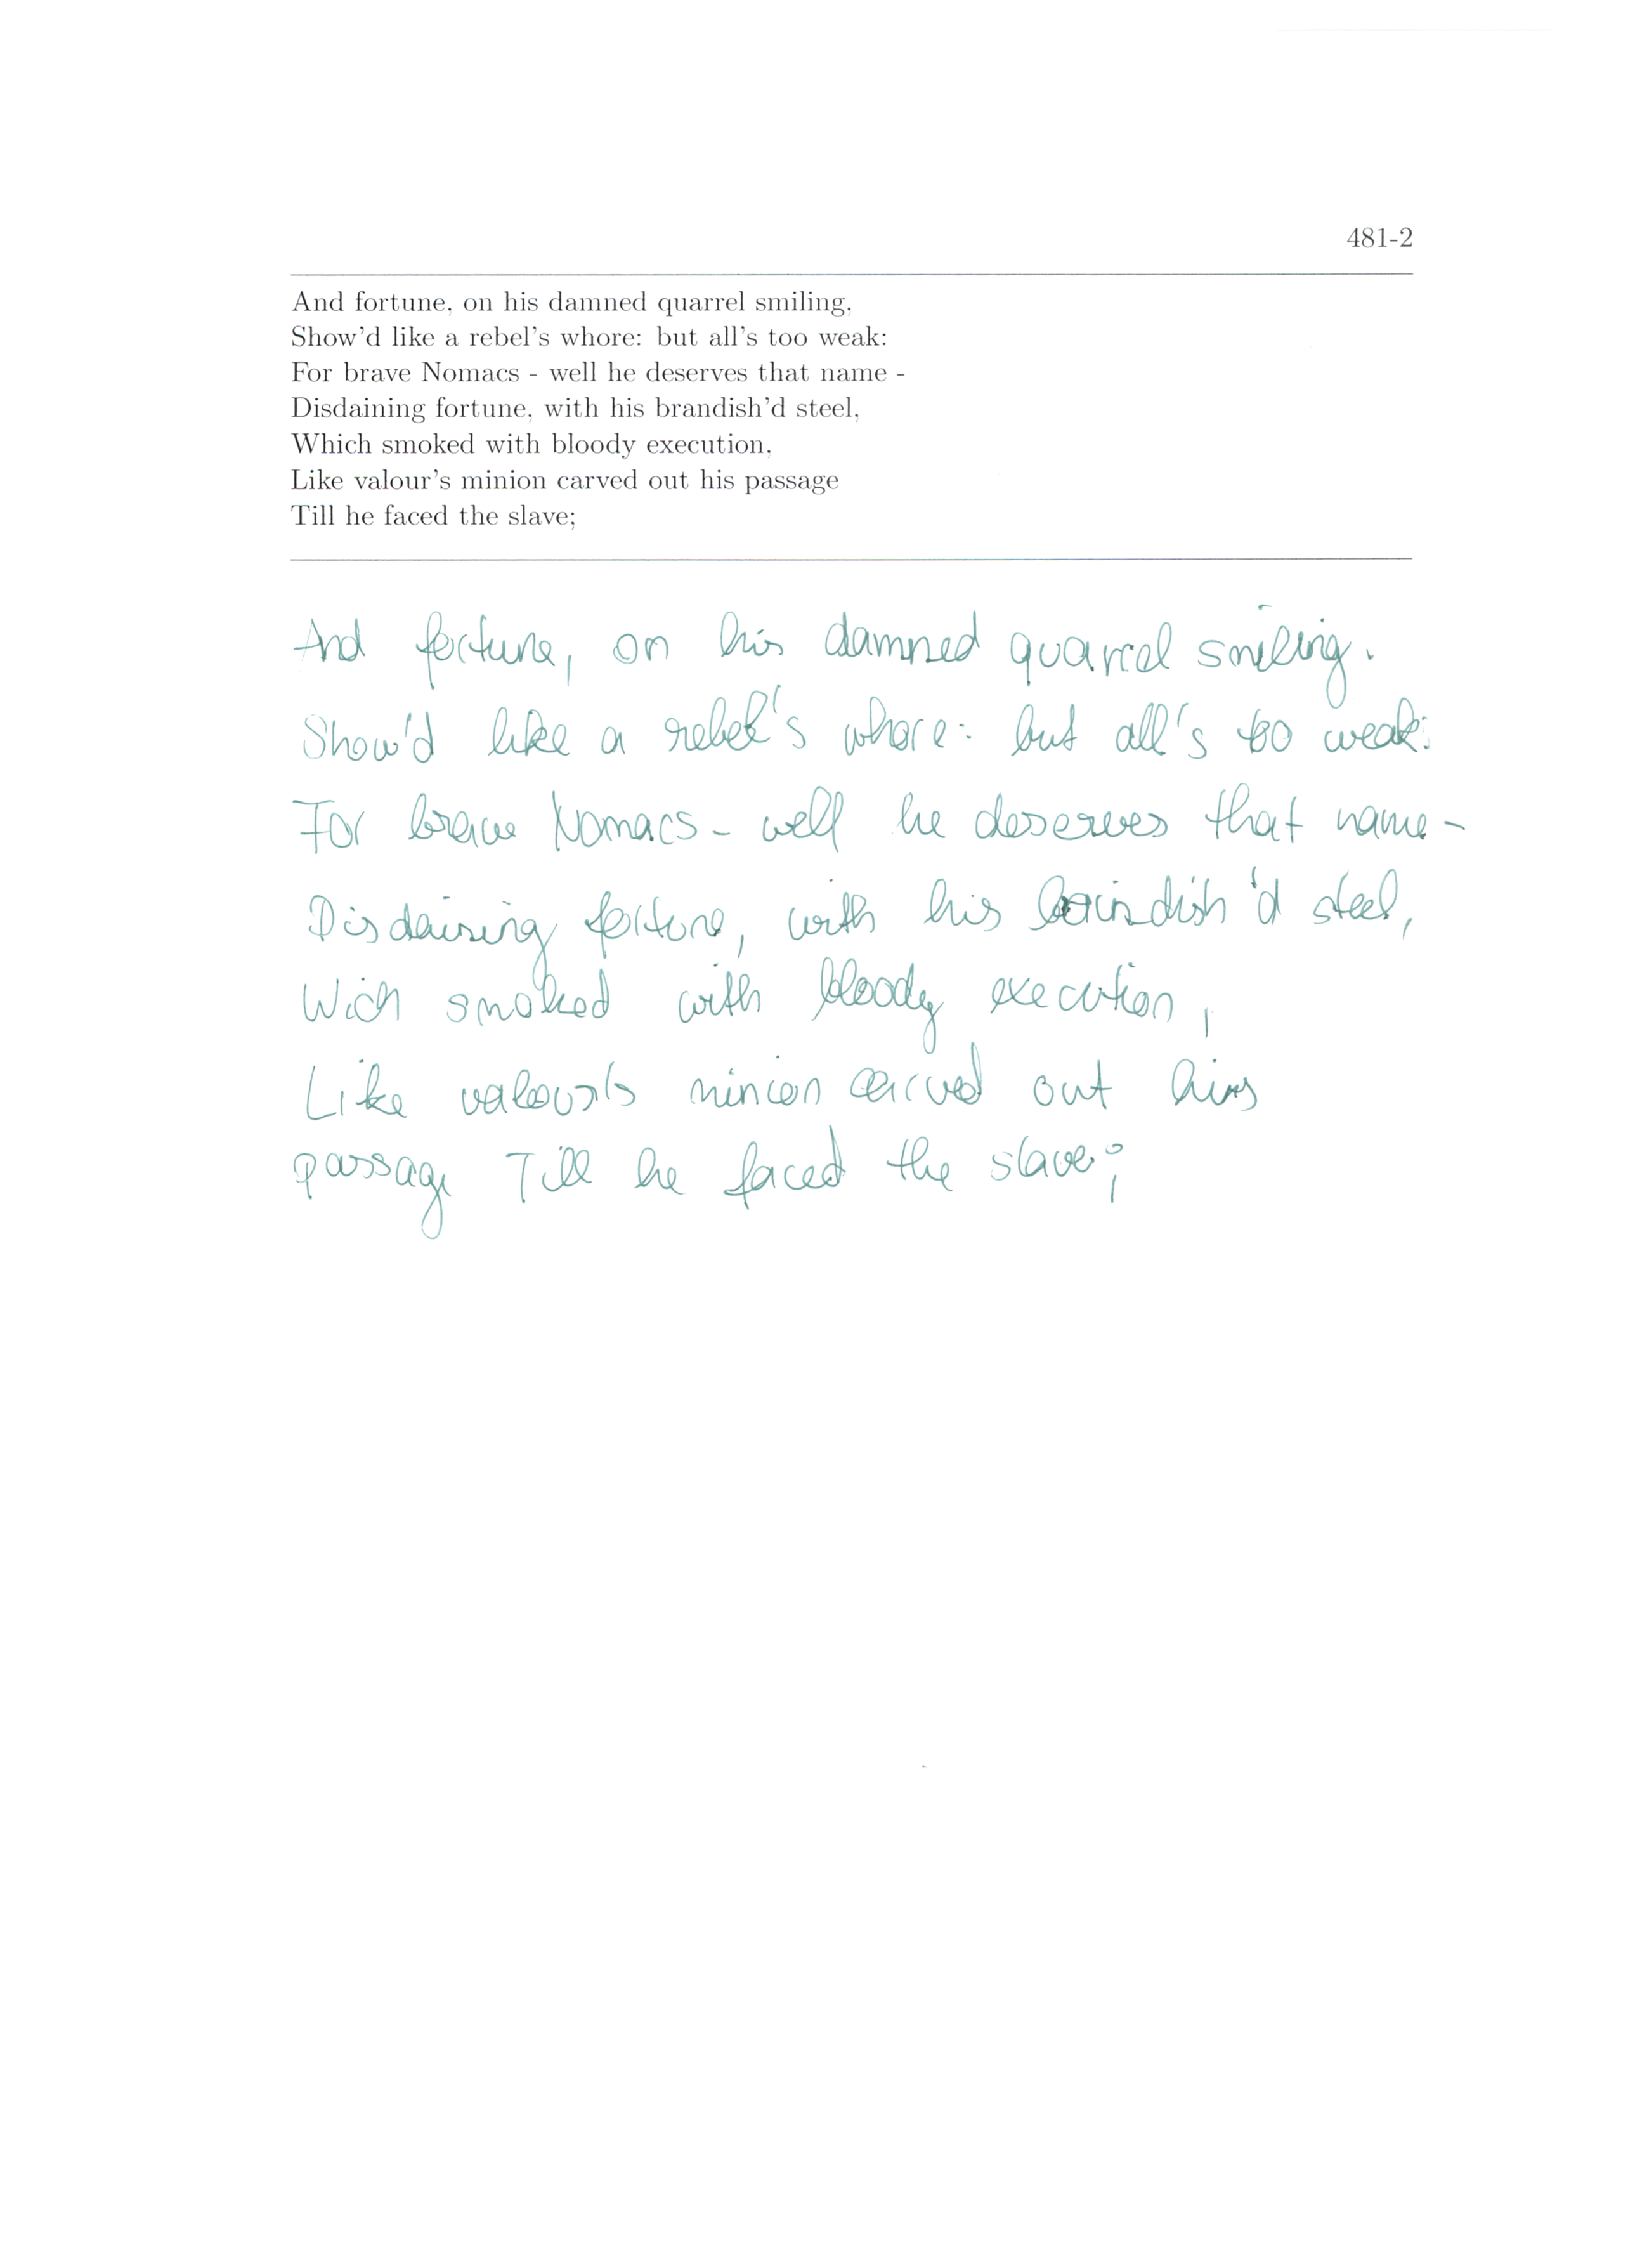 481-2
And fortune, on his damned quarrel smiling,
Show'd like a rebel's whore: but all's too weak:
For brave Nomacs - well he deserves that name -
Disdaining fortune, with his brandish'd steel,
Which smoked with bloody execution,
Like valour's minion carved out his passage
Till he faced the slave;
And fortune, on his damned quarrel smiling.
Show'd like a rebel's whore: but all's too weak:
For brave Nomacs - well he deserves that name -
Disdaining fortune, with his brandish'd steel,
Wich smoked with bloody execution,
Like valour's minion carved out his
passage Till he faced the slave;